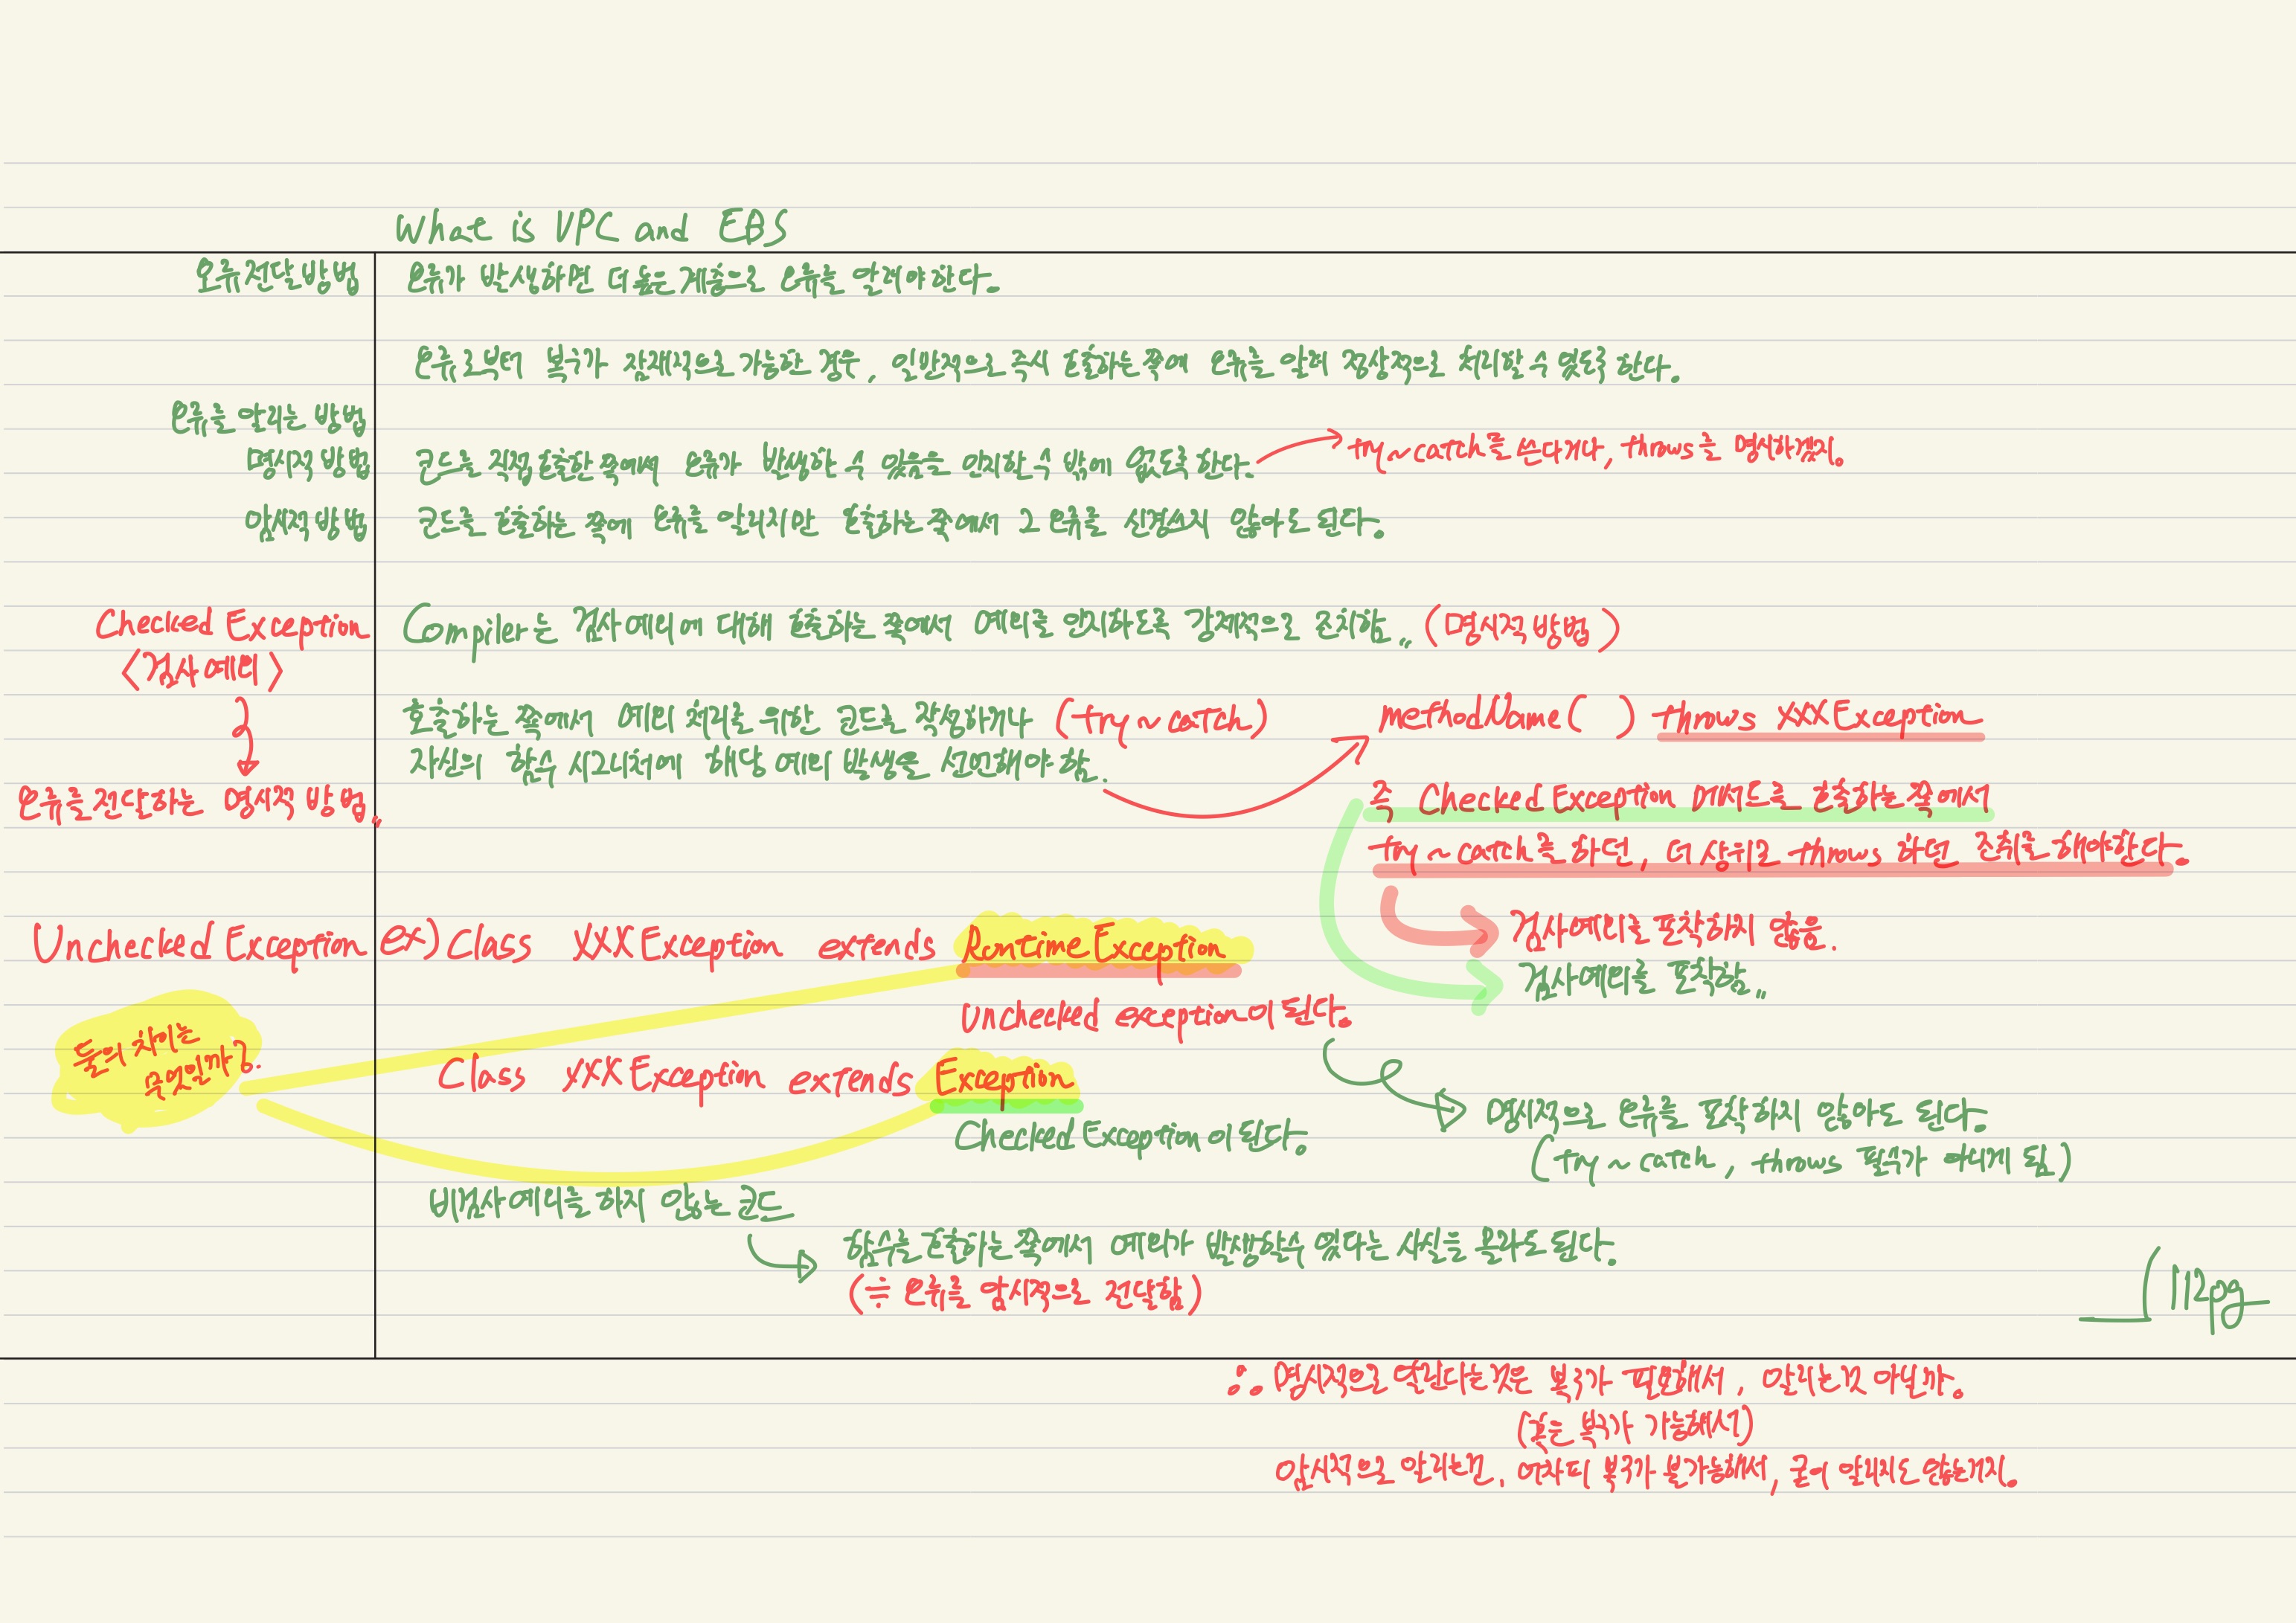 What is VPC and EBS
오류 전달 방법
오류가 발생하면 더 높은 계층으로 오류를 알려야 한다.
오류로부터 복구가 잠재적으로 가능한 경우, 일반적으로 즉시 호출하는 쪽에 오류를 알려 정상적으로 처리할 수 있도록 한다.
오류를 알리는 방법
명시적 방법
코드를 직접 호출한 쪽에서 오류가 발생할 수 있음을 인지할 수 밖에 없도록 한다.
try ~ catch를 쓴다거나, throws를 명시하겠지.
암시적 방법
코드를 호출하는 쪽에 오류를 알리지만 호출하는 쪽에서 그 오류를 신경쓰지 않아도 된다.
Checked Exception
<검사 예외>
오류를 전달하는 명시적 방법.,
Compiler는 검사 예외에 대해 호출하는 쪽에서 예외를 인지하도록 강제적으로 조치함.. (명시적 방법)
호출하는 쪽에서 예외 처리를 위한 코드를 작성하거나 (try ~ catch)
자신의 함수 시그니처에 해당 예외 발생을 선언해야 함.
methodName( ) throws XXXException
즉, Checked Exception 메서드를 호출하는 쪽에서
try ~ catch를 하던, 더 상위로 throws 하던 조취를 해야한다.
검사예외를 포착하지 않음.
검사예외를 포착함.,
Unchecked Exception
ex) Class XXXException extends RuntimeException
Unchecked exception이 된다.
둘의 차이는
무엇일까?.
Class XXXException extends Exception
Checked Exception이 된다.
명시적으로 오류를 포착하지 않아도 된다.
(try ~ catch, throws 필수가 아니게 됨)
비검사 예외를 하지 않는 코드
함수를 호출하는 쪽에서 예외가 발생할수 있다는 사실을 몰라도 된다.
(≒ 오류를 암시적으로 전달함)
112pg
∴ 명시적으로 알린다는것은 복구가 필요해서, 알리는것 아닐까.
(혹은 복구가 가능해서)
암시적으로 알리는건, 어차피 복구가 불가능해서, 굳이 알리지도 않는거지.